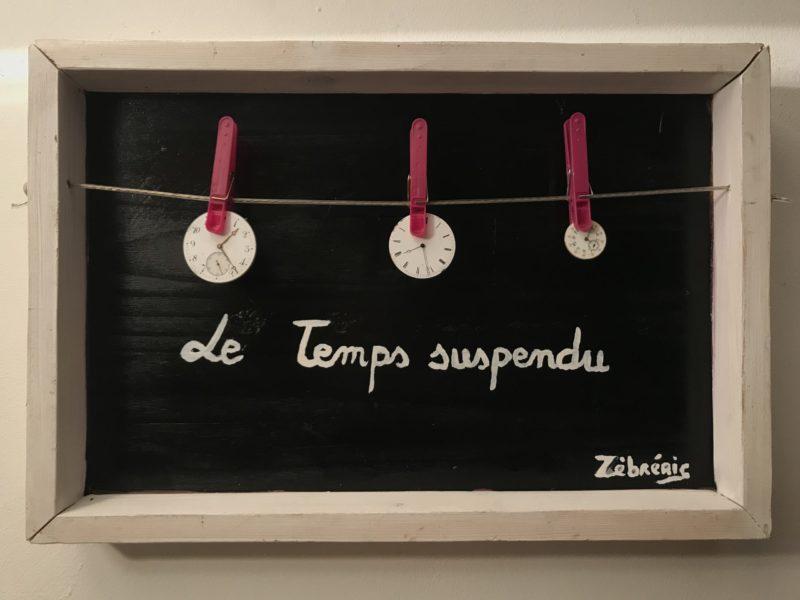 Le Temps suspendu
Zèbréric